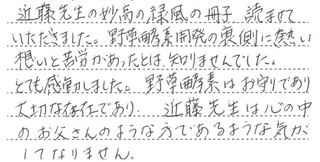 近藤先生の妙高の緑風の冊子 読ませて
いただきました。野草酵素開発の裏側に熱い
想いと苦労があったとは知りませんでした。
とても感動しました。野草酵素はお守りであり
大切な存在であり、近藤先生は心の中
のお父さんのような方であるような気が
してなりません。